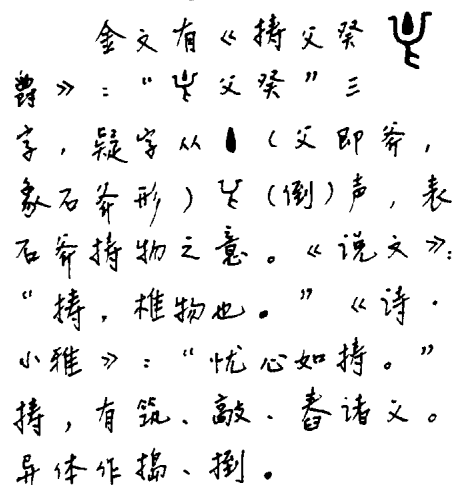 金文有《擣父癸
爵》："父癸"三
字，疑字从（父即斧，
象石斧形）（倒）声，表
石斧擣物之意。《说文》：
"擣，椎物也。"《诗·
小雅》："忧心如擣。"
擣，有筑、敲、舂诸义。
异体作搗、捯。